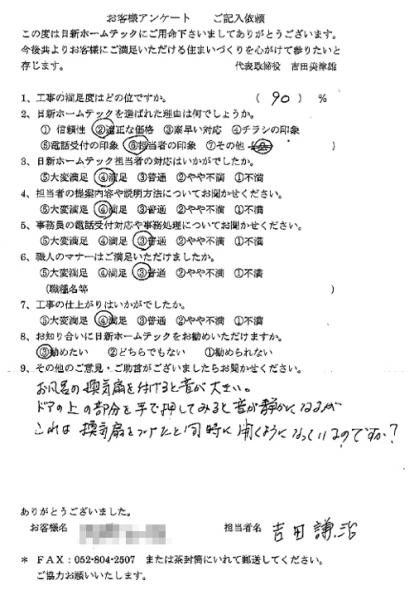 お客様アンケート　ご記入依頼
この度は日新ホームテックにご用命下さいましてありがとうございます。
今後共よりお客様にご満足いただける住まいづくりを心がけて参りたいと
存じます。　代表取締役　吉田美津雄
1、工事の満足度はどの位ですか。　（　90　）　％
2、日新ホームテックを選ばれた理由は何でしょうか。
①　信頼性　②適正な価格　③素早い対応　④チラシの印象
⑤電話受付の印象　⑥担当者の印象　⑦その他　（　）
3、日新ホームテック担当者の対応はいかがでしたか。
⑤大変満足　④満足　③普通　②やや不満　①不満
4、担当者の提案内容や説明方法についてお聞かせください。
⑤大変満足　④満足　③普通　②やや不満　①不満
5、事務員の電話受付対応や事務処理についてお聞かせください。
⑤大変満足　④満足　③普通　②やや不満　①不満
6、職人のマナーはご満足いただけましたか。
⑤大変満足　④満足　③普通　②やや不満　①不満
（職種名等　）
7、工事の仕上がりはいかがでしたか。
⑤大変満足　④満足　③普通　②やや不満　①不満
8、お知り合いに日新ホームテックをお勧めいただけますか。
③勧めたい　②どちらでもない　①勧められない
9、その他のご意見・ご助言がございましたらお聞かせください。
お風呂の換気扇を付けると音が大きい。
ドアの上の部分を手で押してみると音が静かになるが
これは換気扇をつけたと同時に開くようになっているのですか？
ありがとうございました。
お客様名　担当者名　吉田謙治
＊　ＦＡＸ：052-804-2507　または茶封筒にいれて郵送してください。
ご協力お願いいたします。